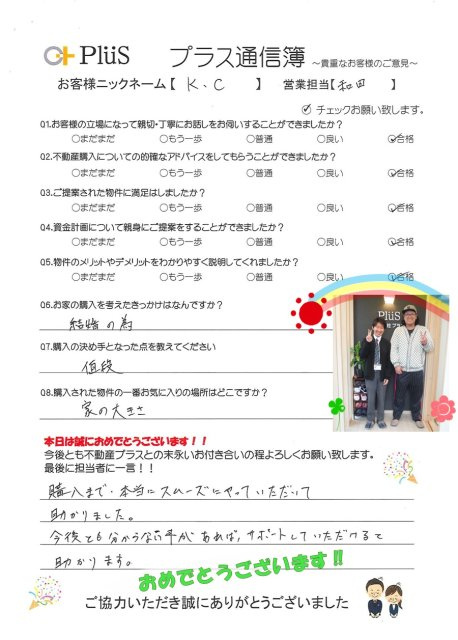 PlüS プラス通信簿 ～貴重なお客様のご意見～
お客様ニックネーム【 K、C 】 営業担当【 和田 】
チェックお願い致します。
Q1.お客様の立場になって親切・丁寧にお話しをお伺いすることができましたか？
○まだまだ ○もう一歩 ○普通 ○良い ○合格
Q2.不動産購入についての的確なアドバイスをしてもらうことができましたか？
○まだまだ ○もう一歩 ○普通 ○良い ○合格
Q3.ご提案された物件に満足はしましたか？
○まだまだ ○もう一歩 ○普通 ○良い ○合格
Q4.資金計画について親身にご提案をすることができましたか？
○まだまだ ○もう一歩 ○普通 ○良い ○合格
Q5.物件のメリットやデメリットをわかりやすく説明してくれましたか？
○まだまだ ○もう一歩 ○普通 ○良い ○合格
Q6.お家の購入を考えたきっかけはなんですか？
結婚の為
Q7.購入の決め手となった点を教えてください
値段
Q8.購入された物件の一番お気に入りの場所はどこですか？
家の大きさ
PlüS
本日は誠におめでとうございます！！
今後とも不動産プラスとの末永いお付き合いの程よろしくお願い致します。
最後に担当者に一言！！
購入まで、本当にスムーズにやっていただいて
助かりました。
今後とも分からない事があれば、サポートしていただけると
助かります。
おめでとうございます!!
ご協力いただき誠にありがとうございました